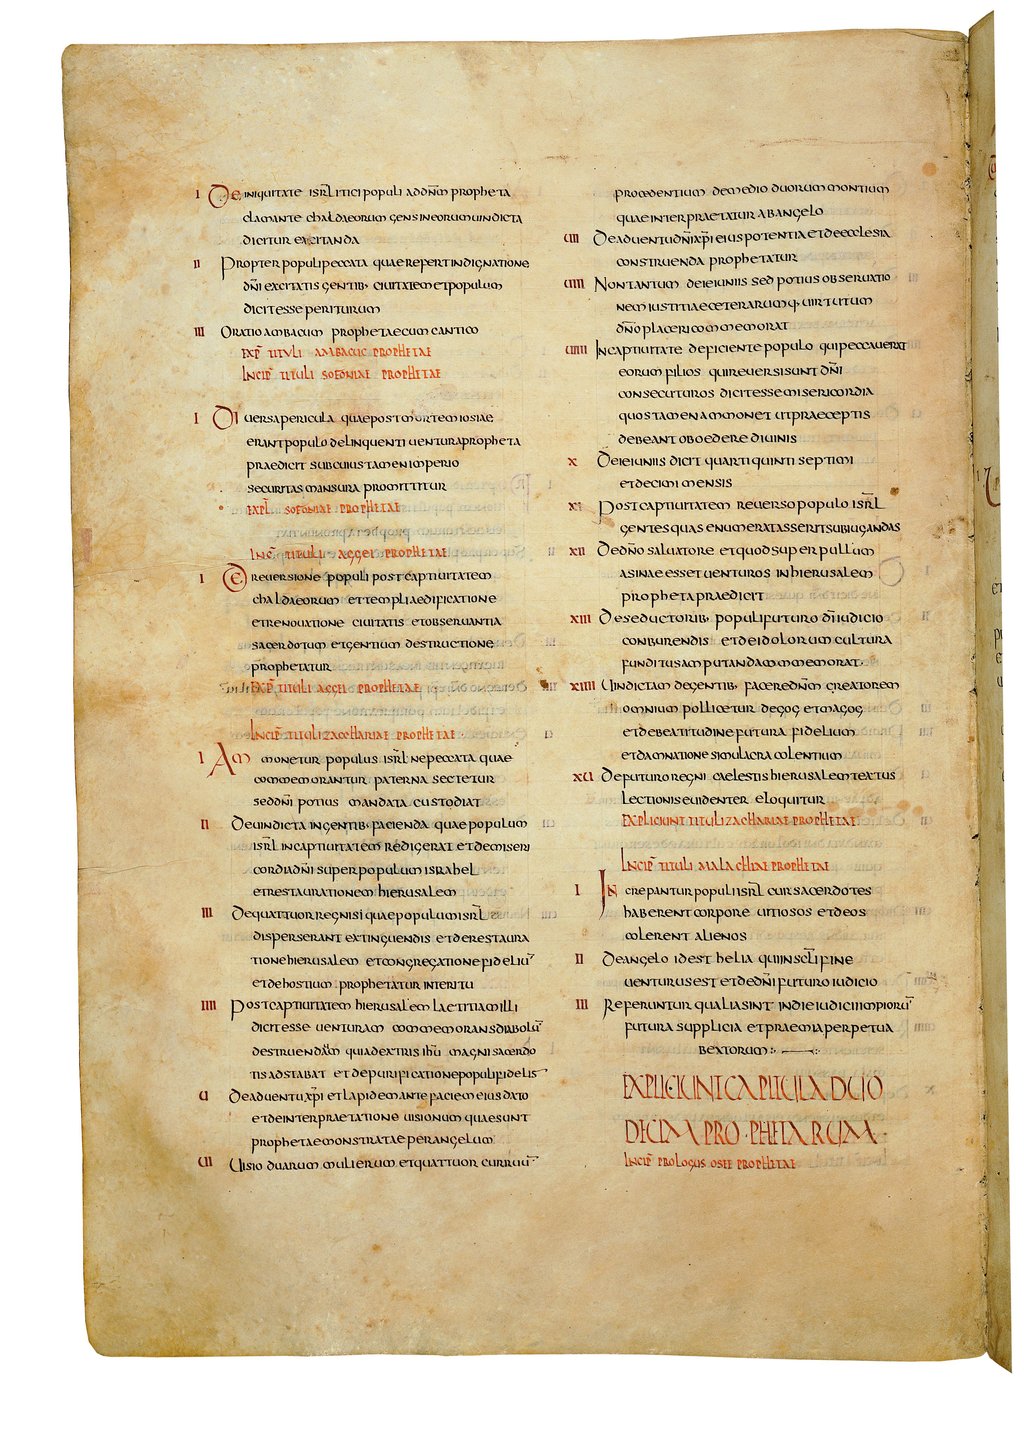 I De iniquitate isrl itici populi ad dnm propheta
clamante chaldaeorum gens in eorum uindicta
dicitur excitanda
II Propter populi peccata quae repert indignatione
dni excitatis gentib· ciuitatem et populum
dicit esse periturum
III Oratio ambacum prophetae cum cantico
EXP TITULI AMBACUC PROPHETAE
INCIP TITULI SOFONIAE PROPHETAE
I Diuersa pericula quae post mortem iosiae
erant populo delinquenti uentura propheta
praedicit sub cuius tamen imperio
securitas mansura promittitur
EXPL SOFONIAE PROPHETAE
INC TITULI AGGEI PROPHETAE
I De reuersione populi post captiuitatem
chaldaeorum et templi aedificatione
et renouatione ciuitatis et obseruantia
sacerdotum et gentium destructione
prophetatur
EXP TITULI AGGEI PROPHETAE
INCIP TITULI ZACCHARIAE PROPHETAE
I Ammonetur populus isrl ne peccata quae
commemorantur paterna sectetur
sed dni potius mandata custodiat
II De uindicta in gentib· facienda quae populum
isrl in captiuitatem redigerat et de miseri
cordia dni super populum israhel
et restaurationem hierusalem
III De quattuor regnis i quae populum isrl
disperserant extinguendis et de restaura
tione hierusalem et congregatione fideliu
et de hostium prophetatur interitu
IIII Post captiuitatem hierusalem laetitiam illi
dicit esse uenturam commemorans diabolu
destruendum quia dextris ihu magni sacerdo
tis adstabat et de purificatione populi fidelis
U De aduentu xpi et lapidem ante faciem eius dato
et de interpraetatione uisionum quae sunt
prophetae monstratae per angelum
UII Uisio duarum mulierum et quattuor curruu
procedentium de medio duorum montium
quae interpraetatur ab angelo
UII De aduentu dni xpi eius potentia et de ecclesia
construenda prophetatur
UIII Non tantum de ieiuniis sed potius obseruatio
nem iustitiae ceterarumq· uirtutum
dno placeri commemorat
UIIII In captiuitate deficiente populo qui peccauerat
eorum filios qui reuersi sunt dni
consecuturos dicit esse misericordia
quos tamen ammonet ut praeceptis
debeant oboedere diuinis
X De ieiuniis dicit quarti quinti septimi
et decimi mensis
XI Post captiuitatem reuerso populo isrl
gentes quas enumerat asserit subiugandas
XII De dno saluatore et quod super pullum
asinae esset uenturos in hierusalem
propheta praedicit
XIII De seductorib· populi futuro di iudicio
conburendis et de idolorum cultura
funditus amputanda commemorat·
XIIII Uindictam de gentib· facere dnm creatorem
omnium pollicetur de gog et magog
et de beatitudine futura fidelium
et damnatione simulacra colentium
XU De futuro regni caelestis hierusalem textus
lectionis euidenter eloquitur
EXPLICIUNT TITULI ZACHARIAE PROPHETAE
INCIP TITULI MALACHIAE PROPHETAE
I Increpantur populi isrl cur sacerdotes
haberent corpore uitiosos et deos
colerent alienos
II De angelo id est helia qui in scli fine
uenturus est et de dni futuro iudicio
III Referuntur qualia sint in die iudicii impioru
futura supplicia et praemia perpetua
beatorum
EXPLICIUNT CAPITULA DUO
DECIM PROPHETARUM·
INCIP PROLOGUS OSEE PROPHETAE